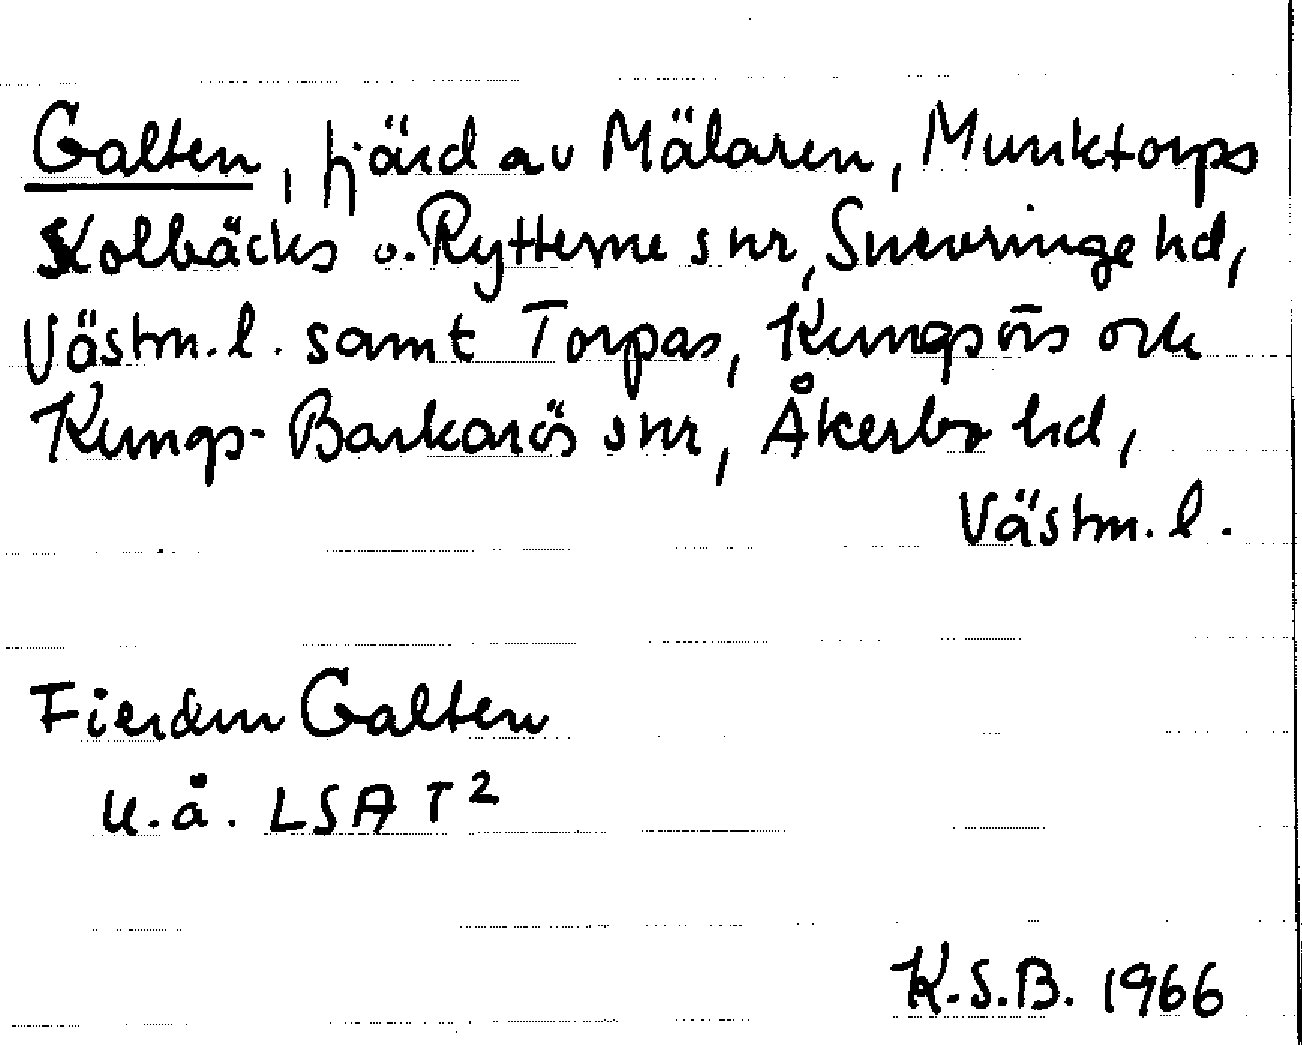 Galten, fjärd av Mälaren, Munktorps
Kolbäcks o. Rytterne snr, Snevringe hd,
Västm. l. samt Torpas, Kungsörs och
Kungs-Barkarös snr, Åkerbo hd,
Västm. l.
Fierden Galten
u.å. LSA T²
K.S.B. 1966